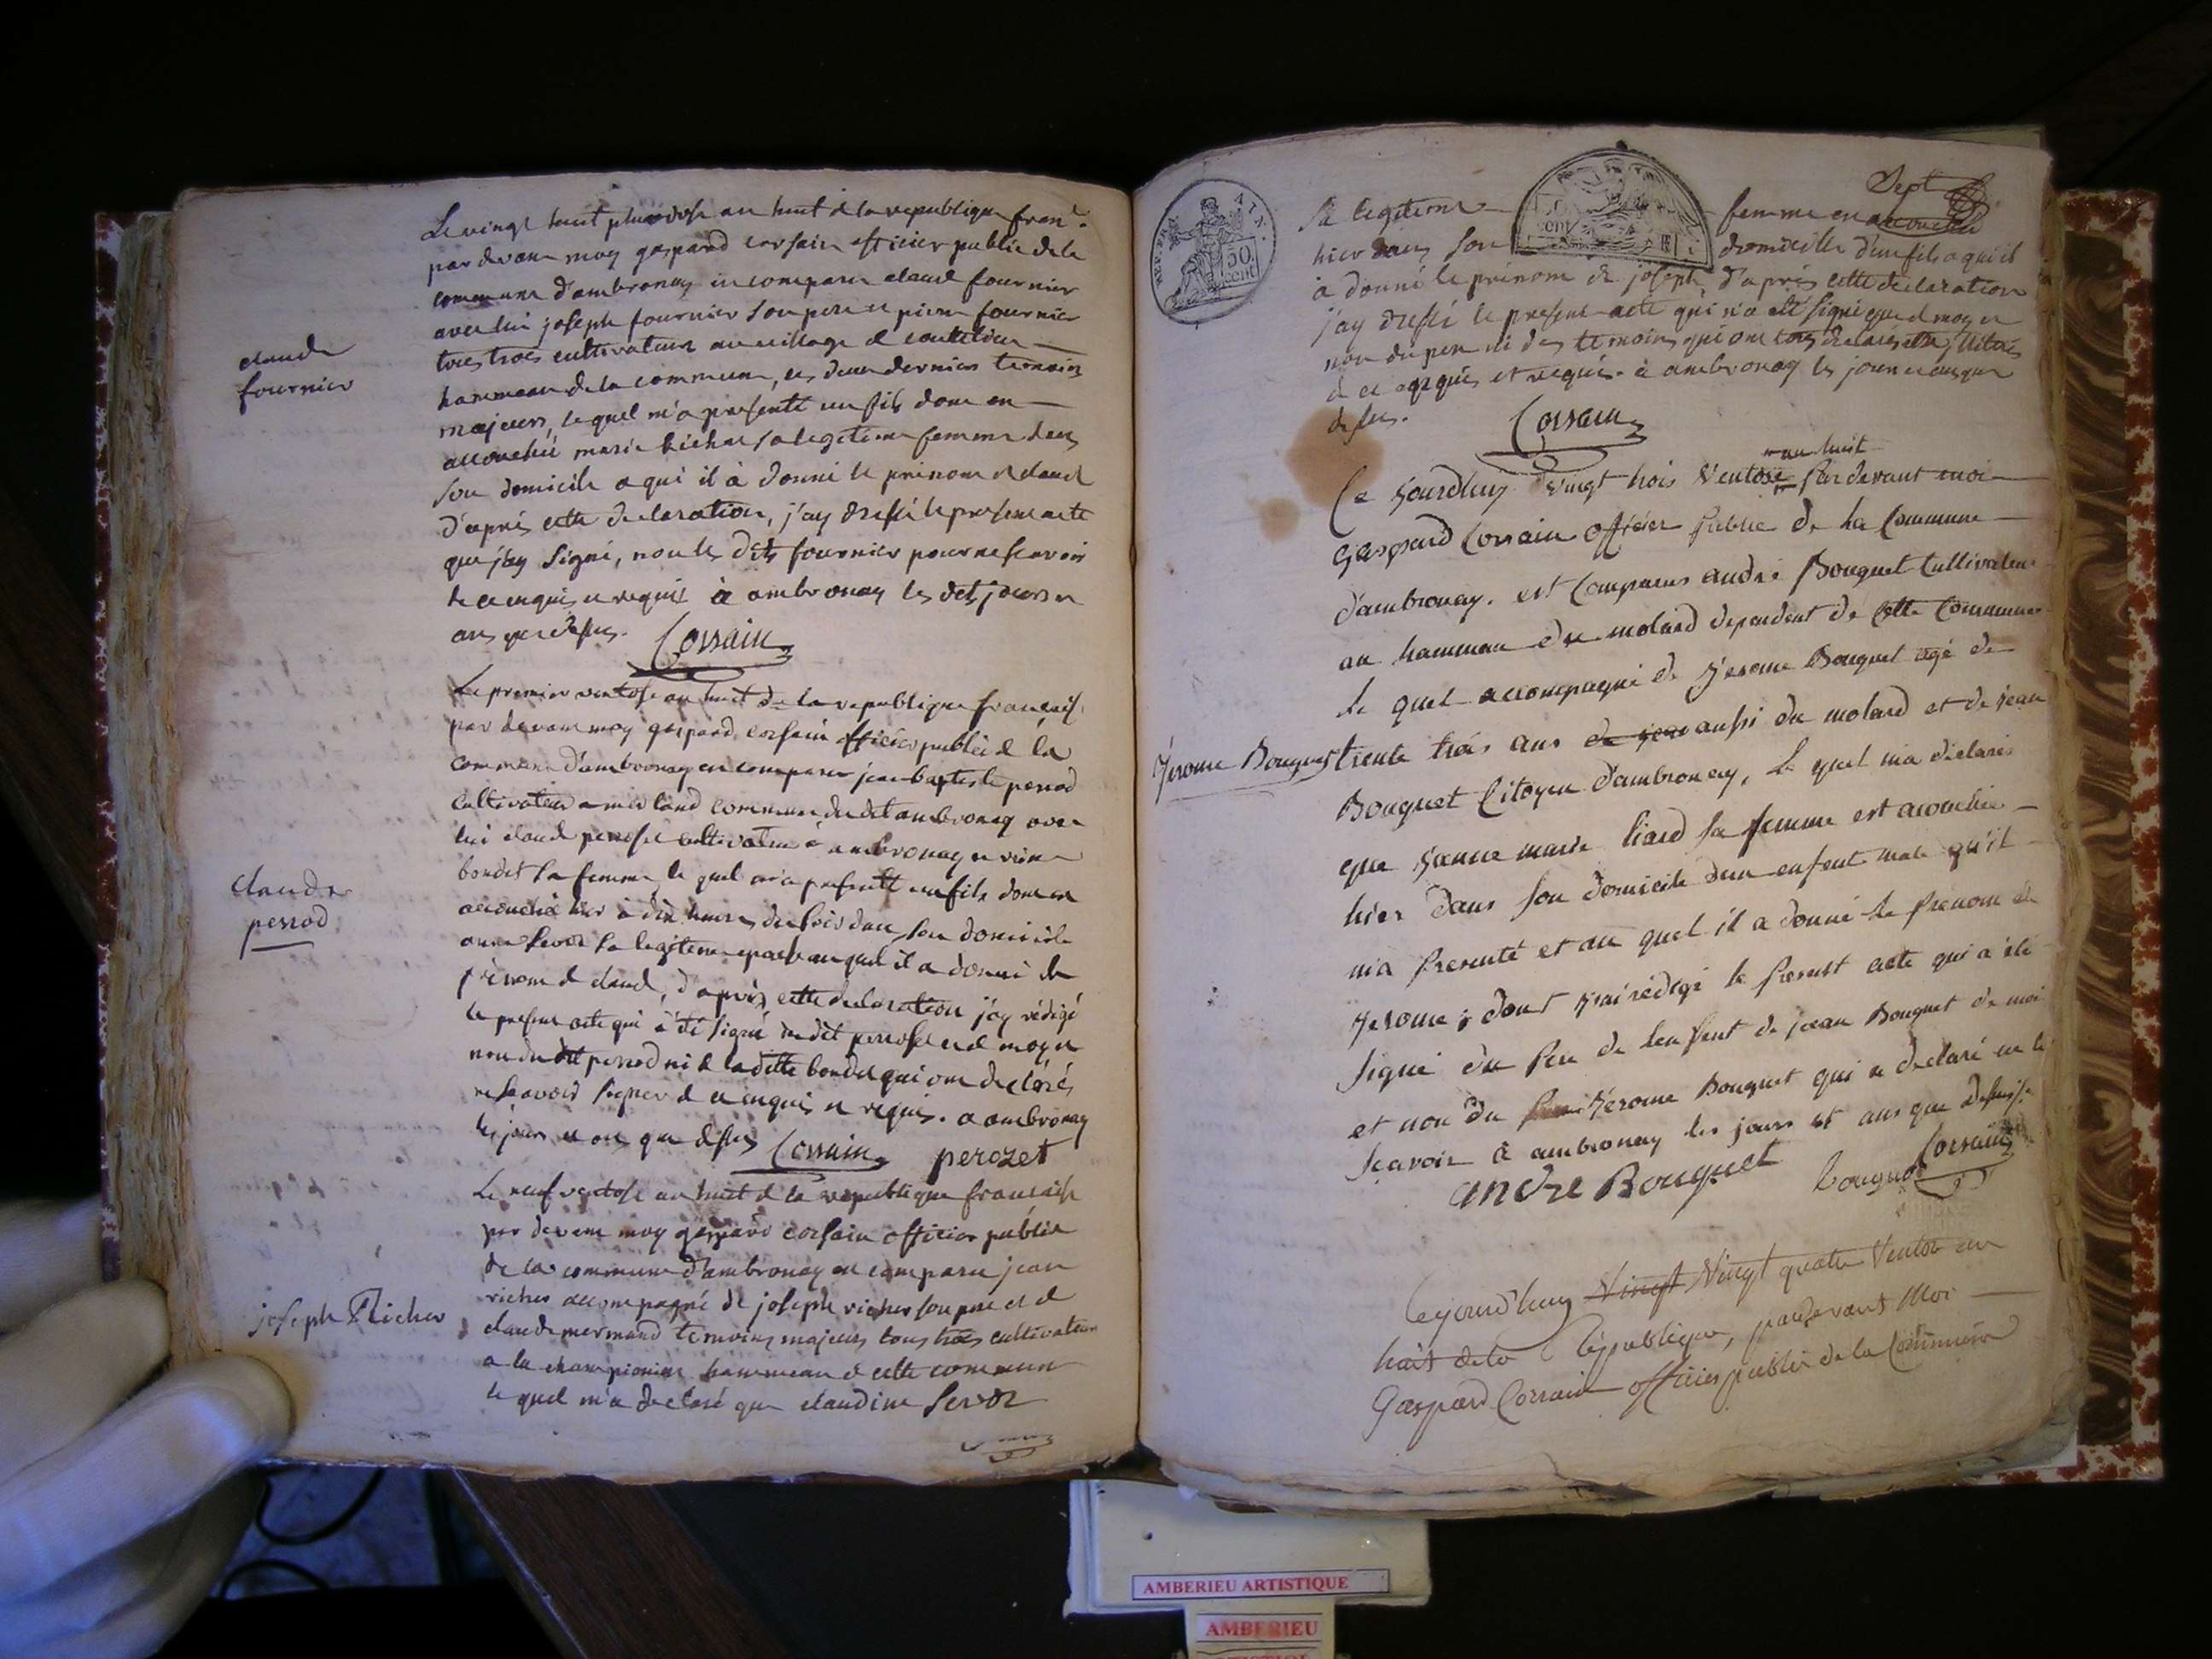 Le vingt huit pluviose an huit de la republique franc.
par devant moy gaspard corsain officier public de la
commune d'ambronay est comparu claude fournier
avec lui joseph fournier son pere et pierre fournier
tous trois cultivateurs au village de
hammeau de la commune, les deux derniers temoins
majeurs, lequel m'a presenté un fils dont en
accouchée marie Richer sa legitime femme dans
son domicile a qui il à donné le prénom de claude
d'après cette declaration, j'ay dressé le present acte
que j'ay signé, non les dits fournier pour ne scavoir
de ce enquis et requis à ambronay les dits jours et
ans que dessus. Corsain
claude
fournier
Le premier ventose an huit de la republique francaise
par devant moy gaspard corsain officier public de la
commune d'ambronay est comparu jean baptiste perrod
cultivateur a merland commune du dit ambronay avec
lui claude peroset cultivateur à ambronay et
bondet sa femme, le quel m'a presenté un fils dont en
accouchée hier à dix heures du soir dans son domicile
anne servoz sa legitime epouse auquel il a donné le
prénom de claude, d'après cette declaration j'ay rédigé
le present acte qui a été signé du dit peroset et de moy et
non du dit perrod ni de la ditte bondet qui ont declarés
ne scavoir signer de ce enquis et requis. a ambronay
les jours et ans que dessus Corsain perozet
claude
perrod
Le neuf ventose an huit de la republique francaise
par devant moy gaspard corsain officier public
de la commune d'ambronay est comparu jean
richer accompagné de joseph richer son pere et de
claude mermand temoins majeurs tous trois cultivateurs
a la championiere hammeau de cette commune
le quel m'a declaré que claudine Servoz
joseph Richer
Sept
sa legitime femme en accouchée
hier dans son domicille d'un fils a qui il
à donné le prénom de joseph, d'après cette declaration
j'ay dressé le present acte qui n'a été signé que de moy et
non du pere ni des temoins qui ont tous declarés etre illitérés
de ce enquis et requis. à ambronay les jour et an que
dessus. Corsain
Ce Jourdhuy vingt trois Ventose an huit Par devant moi
Gaspard Corsain officier Public de la Commune
d'ambronay. est Comparus andré Bouquet Cultivateur
au hammau du molard dependent de Cette Commune
le quel accompagné de Jerome Bouquet agé de
trente trois ans aussi du molard et de jean
Bouquet Citoyen d'ambronay, le quel ma déclarés
que Janne marie liard sa femme est acouchée
hier dans son domicile dun enfent male qu'il
m'a presenté et au quel il a donné le prenom de
Jerome; dont J'ai rédigé le present acte qui a été
signé du Pere de lenfent de jean Bouquet de moi
et non du Jerome Bouquet qui a declaré ne le
scavoir à ambronay les jours et ans que dessus.
andre Bouquet bouquet Corsain
Jerome Bouquet
Cejourd'huy Vingt Vingt quatre Ventose an
huit de la République, pardevant Moi
Gaspard Corsain officier public de la Commune
50
cent
AMBERIEU ARTISTIQUE
AMBERIEU